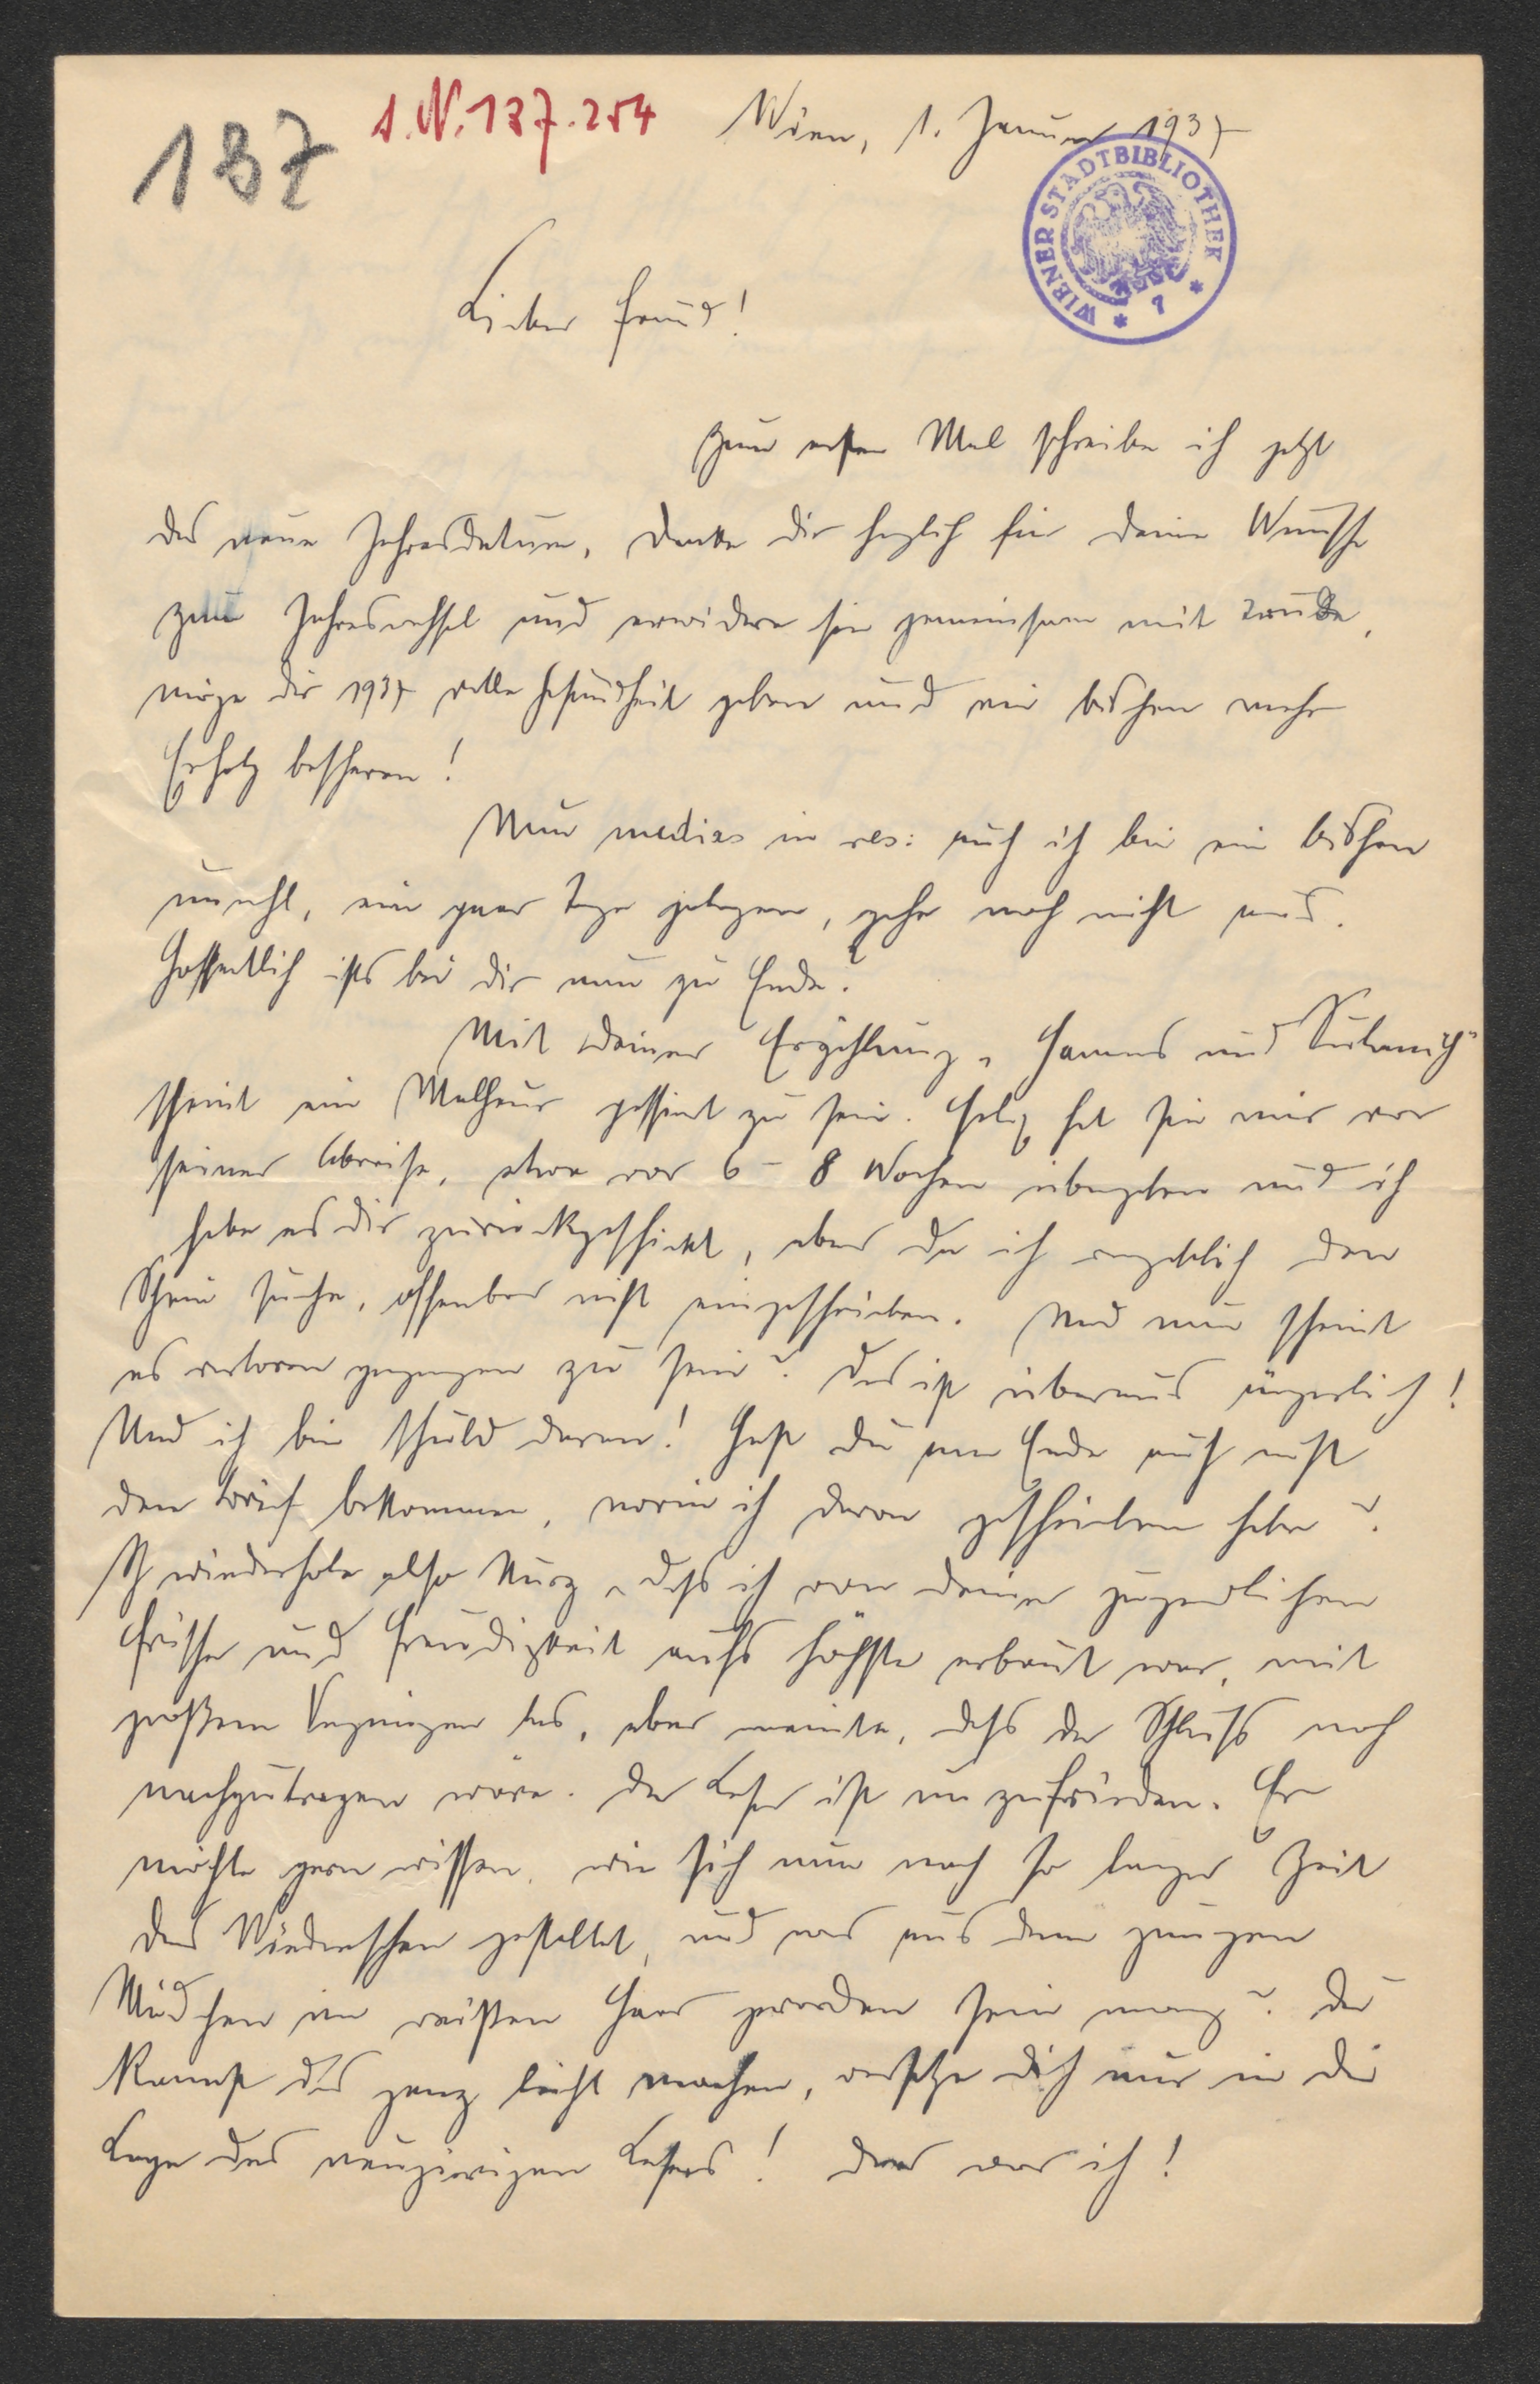 187
I.N. 137.254
Wien, 1. Januar 1937
WIENER STADTBIBLIOTHEK * 7 *
Lieber Freund!
Zum ersten Mal schreibe ich jetzt
das neue Jahresdatum, danke dir herzlich für deine Wünsche
zum Jahreswechsel und erwidere sie gemeinsam mit Trude,
möge dir 1937 volle Gesundheit geben und ein bischen mehr
Erfolg bescheren!
Nun medias in res: auch ich bin ein bischen
unwohl, ein paar Tage gelegen, gehe noch nicht aus.
Hoffentlich ists bei dir nun zu Ende?
Mit deiner Erzählung „Hannes und Sulamith"
scheint ein Malheur passiert zu sein. Felix hat sie mir vor
seiner Abreise, etwa vor 6 - 8 Wochen übergeben und ich
habe es dir zurückgeschickt, aber da ich vergeblich den
Schein suche, offenbar nicht eingeschrieben. Und nun scheint
es verloren gegangen zu sein? Das ist überaus ärgerlich!
Und ich bin schuld daran! Hast du am Ende auch nicht
den Brief bekommen, worin ich davon geschrieben habe?
Ich wiederhole also kurz, dass ich von deiner jugendlichen
Frische und Freudigkeit aufs höchste erbaut war, mit
großem Vergnügen las, aber meinte, dass der Schluss noch
nachzutragen wäre. Der Leser ist unzufrieden. Er
möchte gern wissen, wie sich nun nach so langer Zeit
das Wiedersehen gestaltet, und was aus dem jungen
Mädchen im weißen Haar geworden sein mag? Du
kannst das ganz leicht machen, versetze dich nur in die
Lage des neugierigen Lesers! Das war ich!